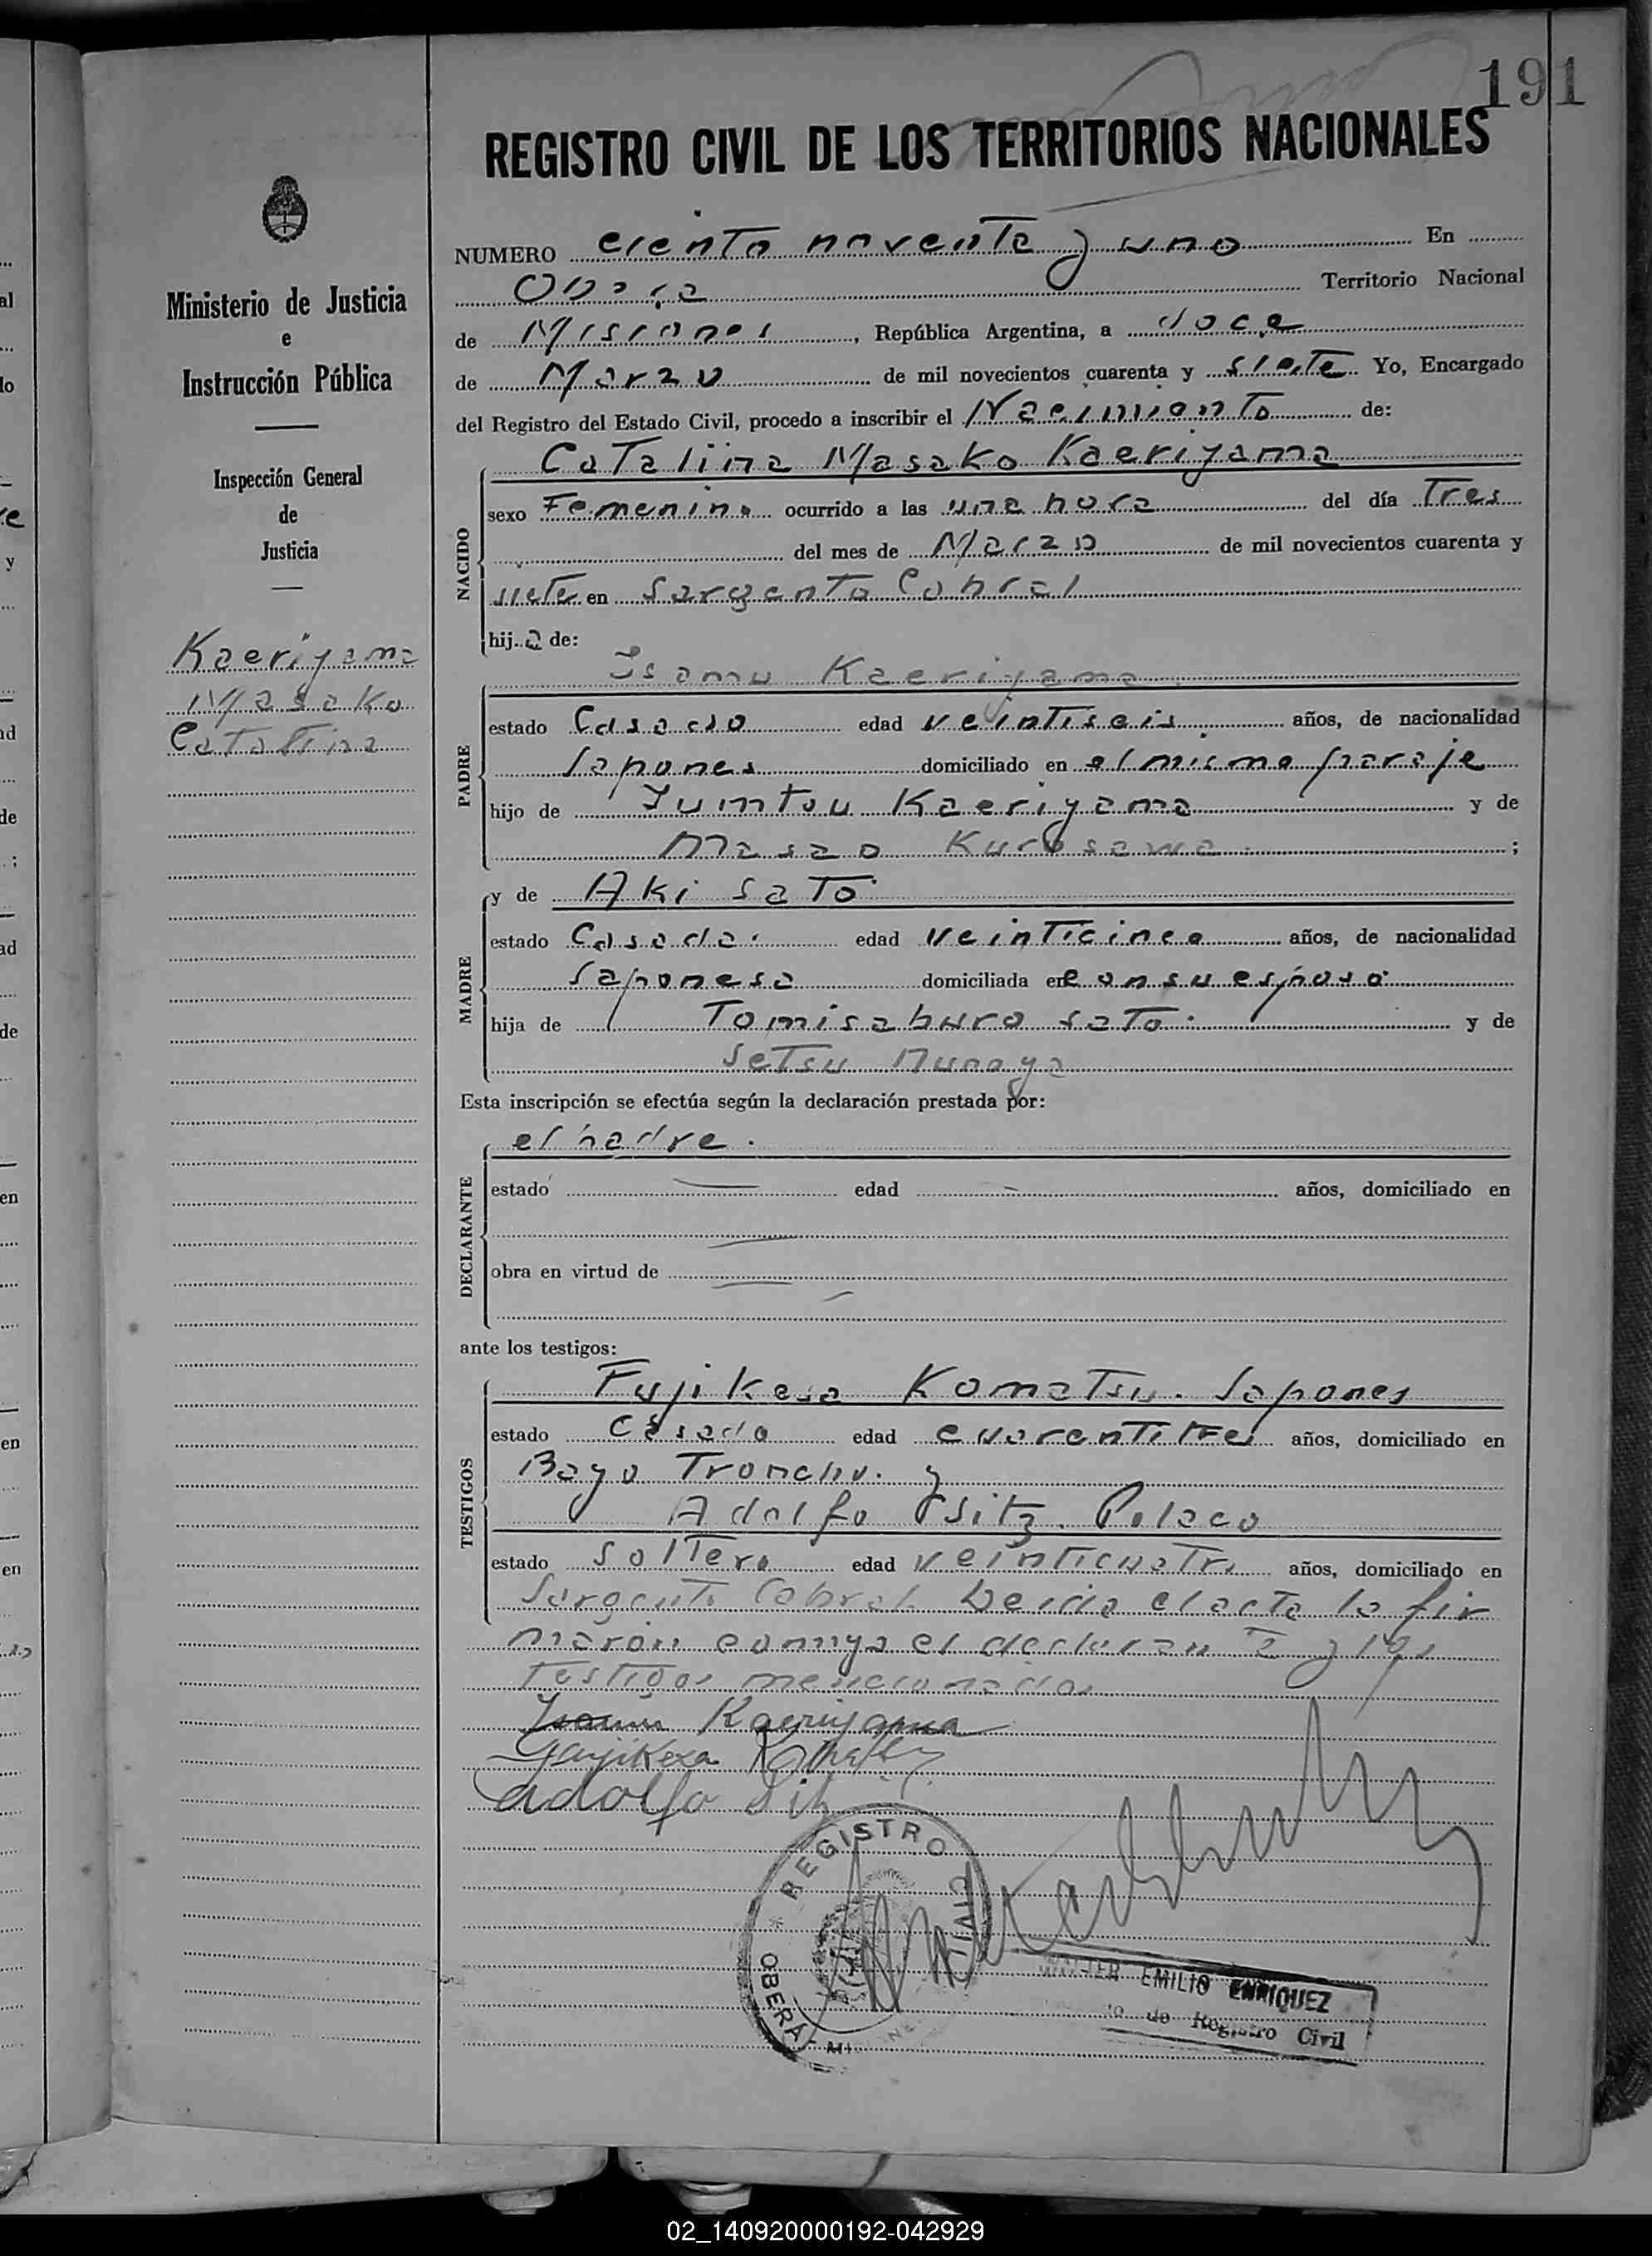 191
REGISTRO CIVIL DE LOS TERRITORIOS NACIONALES
Ministerio de Justicia
e
Instrucción Pública
Inspección General
de
Justicia
Kaeriyama
Masako
Catalina
NUMERO ciento noventa y uno En
Oberá Territorio Nacional
de Misiones, República Argentina, a doce
de Marzo de mil novecientos cuarenta y siete Yo, Encargado
del Registro del Estado Civil, procedo a inscribir el Nacimiento de:
NACIDO
Catalina Masako Kaeriyama
sexo Femenino ocurrido a las una hora del día Tres
del mes de Marzo de mil novecientos cuarenta y
siete en Sargento Cabral
hija de:
PADRE
Isamu Kaeriyama
estado Casado edad veintiseis años, de nacionalidad
Japones domiciliado en el mismo paraje
hijo de Kaeriyama y de
Masao Kurosawa ;
MADRE
y de Aki Sato
estado Casada edad veinticinco años, de nacionalidad
Japonesa domiciliada en con su esposo
hija de Tomisaburo Sato y de
Setsu
Esta inscripción se efectúa según la declaración prestada por:
DECLARANTE
el padre.
estado edad años, domiciliado en
obra en virtud de
ante los testigos:
TESTIGOS
Fujikesa Komatsu. Japones
estado Casado edad cuarentitres años, domiciliado en
Bayo Troncho. y
Adolfo Polaco
estado Soltero edad veinticuatro años, domiciliado en
Sargento Cabral. Leida el acta la fir
maron conmigo el declarante y los
testigos mencionados
Isamu Kaeriyama
Adolfo
REGISTRO CIVIL
OBERÁ
EMILIO ENRIQUEZ
de Registro Civil
02_140920000192-042929